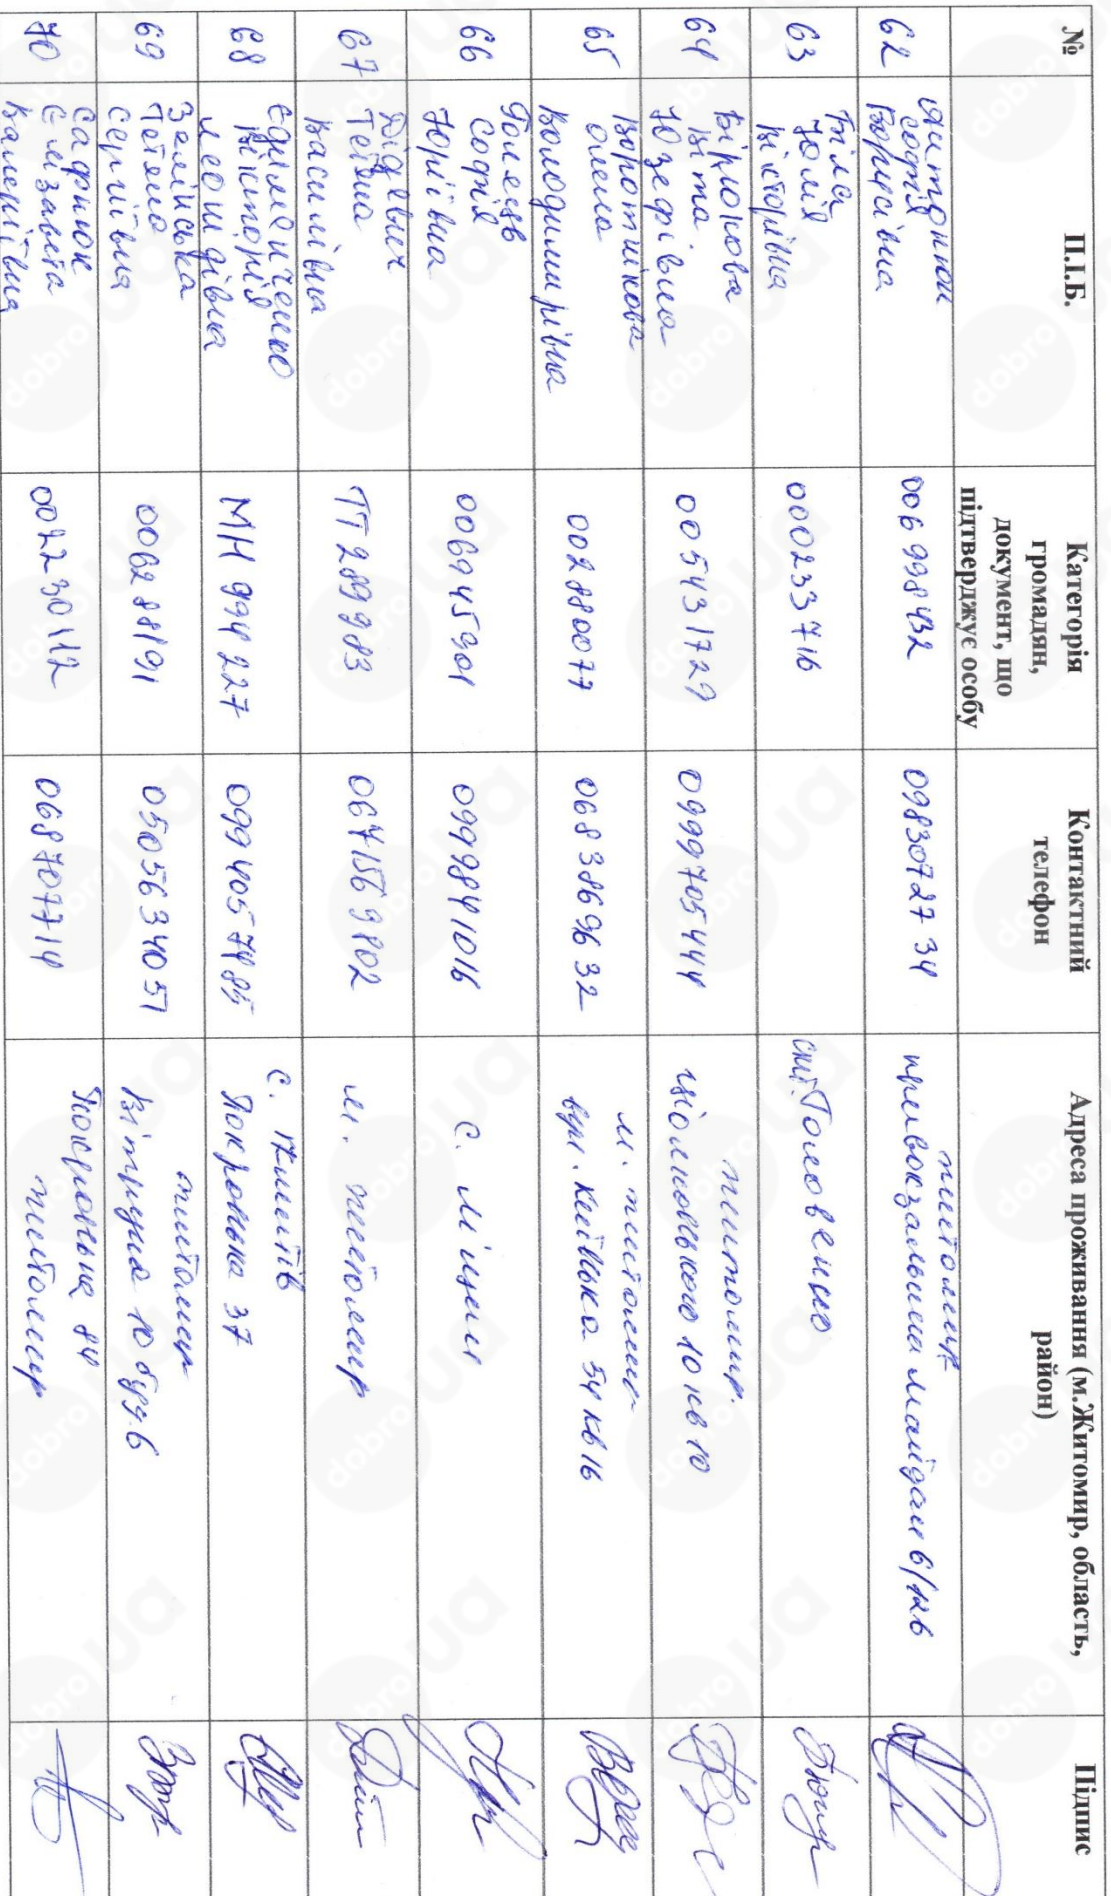 №
П.І.Б.
Категорія
громадян,
документ, що
підтверджує особу
Контактний
телефон
Адреса проживання (м.Житомир, область,
район)
Підпис
62
Софія
Борисівна
006998432
0983072734
житомир
привокзальний майдан 6/126
63
Біла
Юлія
Вікторівна
000233716
смт. Головенко
64
Біронова
Віта
Юзефівна
005431729
0999705444
житомир.
10 кв 10
65
Воротнікова
Олена
Володимирівна
002880077
0683869632
м. житомир
вул. Київська 54 кв 16
66
Голець
Софія
Юріївна
006945901
0999841016
с.
67
Дідевич
Тетяна
Василівна
ТТ 289983
0671569802
м. житомир
68
Єдімениченко
Вікторія
Леонидівна
МН 994227
0994057485
с.
Покровська 37
69
Зелінська
Тетяна
Сергіївна
006288191
0505634051
житомир
Вітрука 10 буд. 6
70
Сафнюк
Єлизавета
Валеніївна
002230112
068707714
Покровська 84
житомир